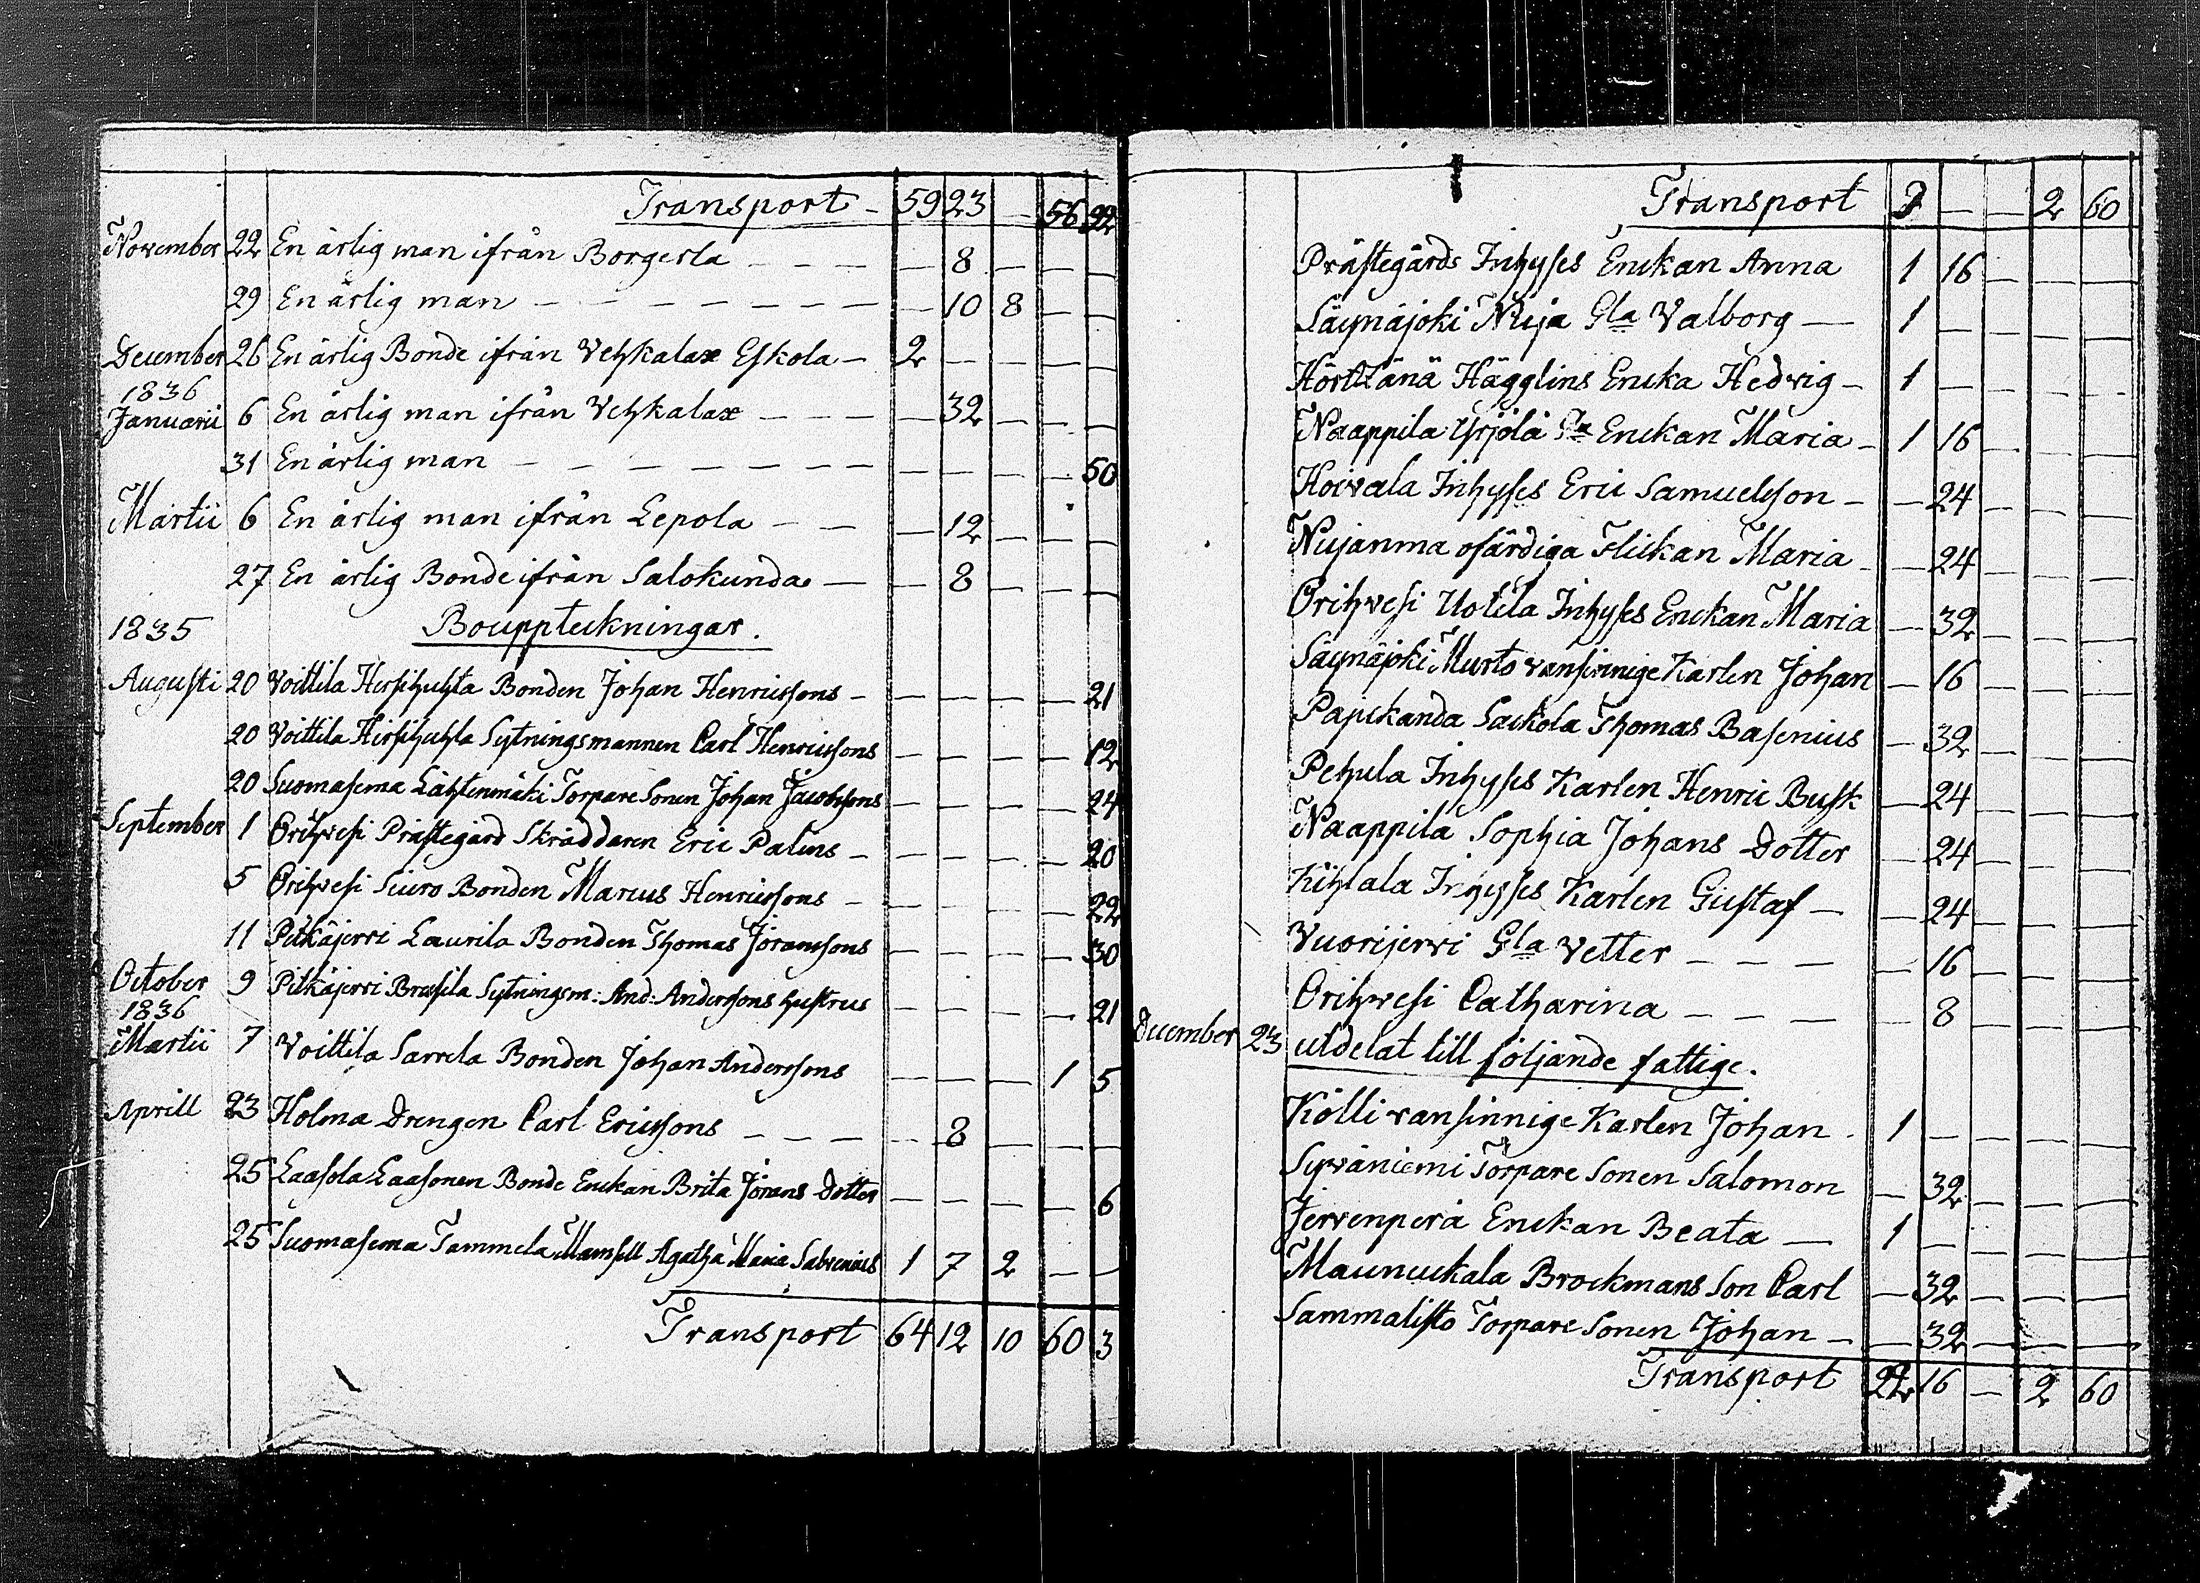 Transport - 59 23 — 56 92
November 22 En ärlig man ifrån Borgerla — — — — 8 — — —
29 En ärlig man — — — — — — — — 10 8 — —
December 26 En ärlig Bonde ifrån Vehkalax Eskola — 2 — — — —
1836
Januarii 6 En ärlig man ifrån Vehkalax — — — — 32 — — —
31 En ärlig man — — — — — — — — — — — 50
Martii 6 En ärlig man ifrån Lepola — — — 12 — — —
27 En ärlig Bonde ifrån Salokunda — — 8 — — —
1835 Bouppteckningar.
Augusti 20 Voittila Hersihuhta Bonden Johan Henricssons — — — — — 21
20 Voittila Hirsihuhta Sytningsmannen Carl Henricssons — — — — 12
20 Suomasema Lähtenmäki Torpare Sonen Johan Jacobssons — — — — 24
September 1 Orihvesi Prästegård Skräddaren Eric Palins — — — — — 20
5 Orihvesi Siuro Bonden Marcus Henricssons — — — — — 22
11 Pitkäjervi Laurila Bonden Thomas Jöranssons — — — — 30
October 9 Pitkäjervi Brusila Sytningsm: And: Anderssons hustrus — — — — 21
1836
Martii 7 Voittila Sarvela Bonden Johan Anderssons — — — 1 5
Aprill 23 Holma Drengen Carl Ericssons — — — — 8 — — —
25 Laasola Laasonen Bonde Enckan Brita Jörans Dotter — — — — 6
25 Suomasema Tammela Mamsell Agatha Maria Sabrenius 1 7 2 — —
Transport 64 12 10 60 3
Transport 7 — — 2 60
Prästegårds Inhyses Enckan Anna 1 16 — — —
Säynäjoki Nuja Gla Valborg — 1 — — — —
Hörtzänä Hägglins Encka Hedvig — 1 — — — —
Naappila Yrjölä Enckan Maria — 1 16 — — —
Hoivala Inhyses Eric Samuelsson — — 24 — — —
Nujanma ofärdiga Flickan Maria — — 24 — — —
Orihvesi Uotila Inhyses Enckan Maria — 32 — — —
Säynäjoki Murto vansinnige Karlen Johan — 16 — — —
Papickanda Sackola Thomas Basenius — 32 — — —
Pehula Inhyses Karlen Henric Busk — 24 — — —
Naappila Sophia Johans Dotter — 24 — — —
Kihlala Inhyses Karlen Gustaf — — 24 — — —
Vuorijervi Gla Vetter — — — — 16 — — —
Orihvesi Catharina — — — — 8 — — —
December 23 utdelat till följande fattige.
Kölli vansinnige Karlen Johan . 1 — — — —
Syväniemi Torpare Sonen Salomon — 32 — — —
Jervenperä Enckan Beata — 1 — — — —
Maunuckala Brockmans Son Carl — 32 — — —
Sammalisto Torpare Sonen Johan — — 32 — — —
Transport 22 16 — 2 60